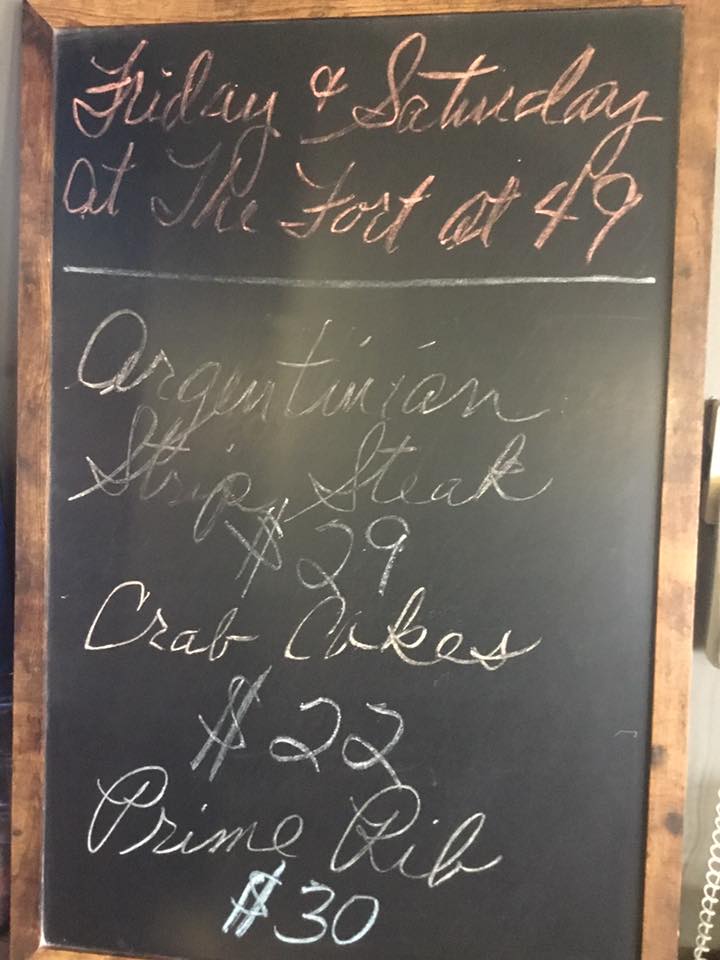 Friday & Saturday
at The Fort at 49
Argentinian
Strip Steak
$29
Crab Cakes
$22
Prime Rib
$30